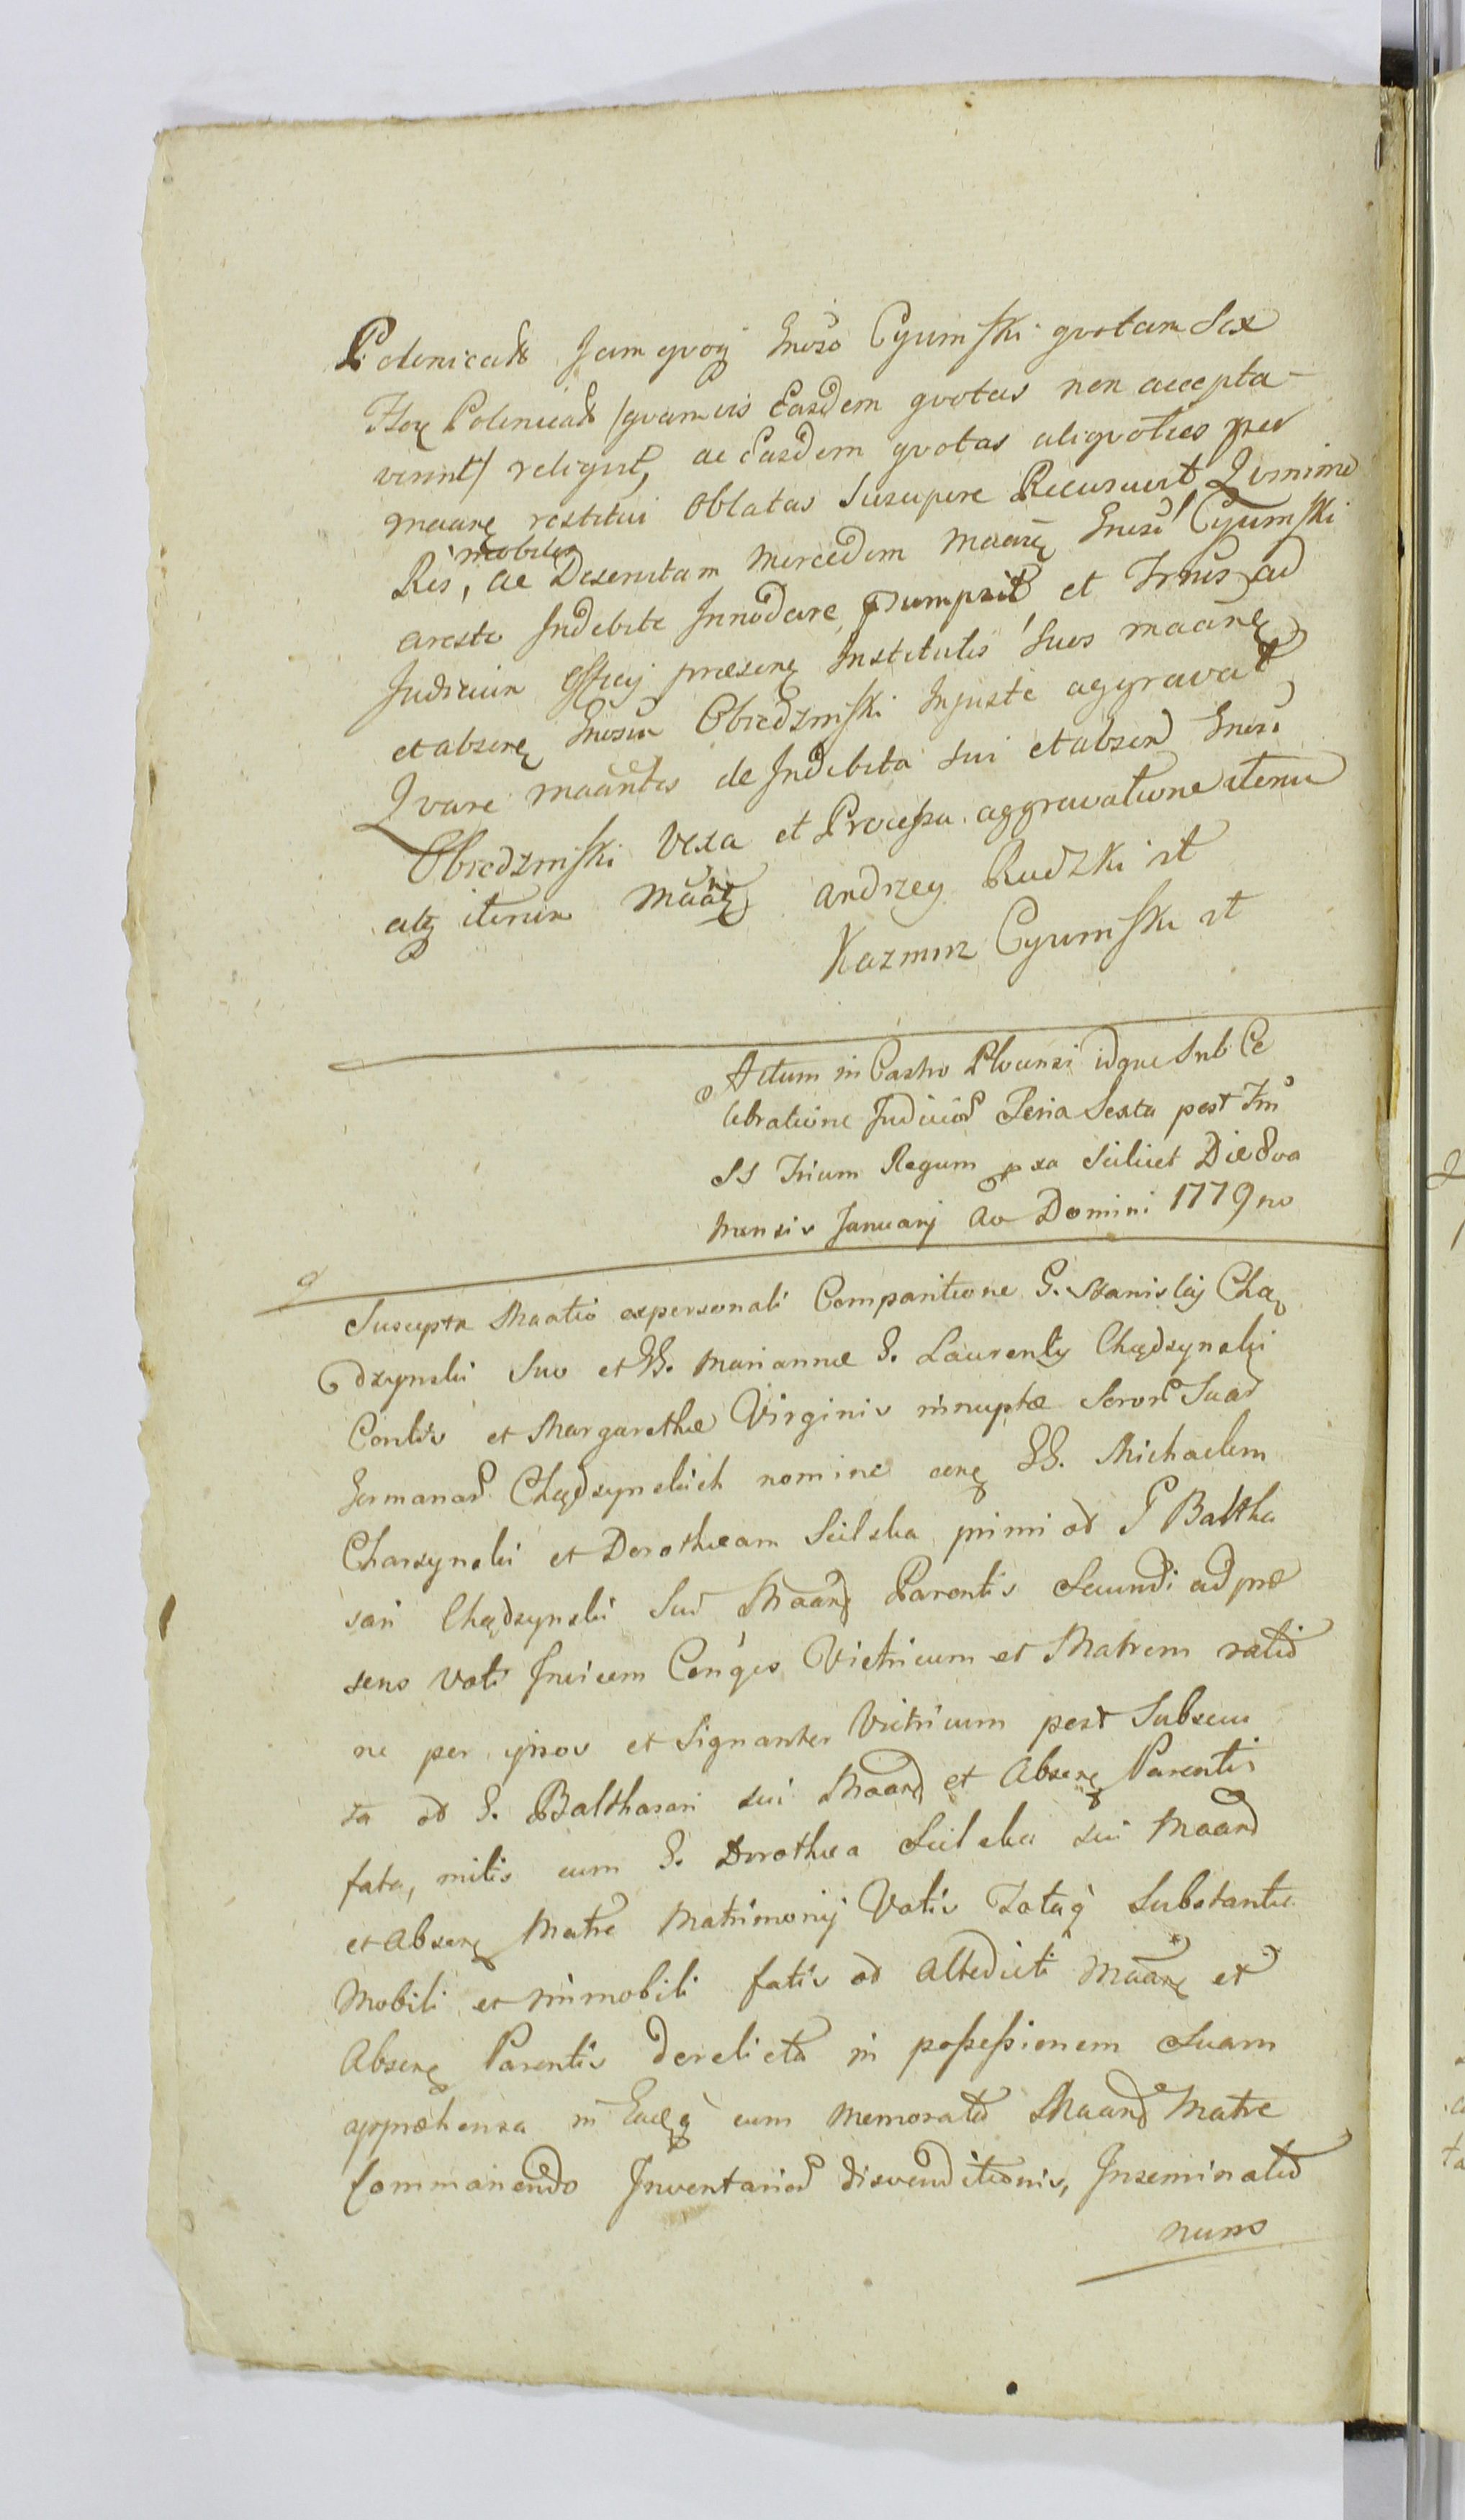 Polonicad Jam qvoq Gnoso Cyumski qvotam Sex
Flor Polonicad /qvamvis Easdem qvotas non accepta-
verint/ reliqvit, ac Easdem qvotas aliqvoties per
maanę restitui oblatas Suscipere Recusavit Qvinimo
mobiles
Res, ac Deservitam mercedem maanę Gnosi Cyumski
aresto Indebite Innodare, psumpsit et Trnis ad
Judicium Officij præsenę Institutis Suos maanę
et absenę Gnosum Obiedzinski Injuste aggravat,
Qvare maantes de Indebita sui et absen Gnosi
Obiedzinski Vexa et Processu aggravatione iterum
atq iterum Maatę Andrzey Rudzki st
Kazmirz Cyumski st
Actum in Castro Plocensi idque Sub Ce
lebratione Judicior Feria Sexta post Fm
SS Trium Regum pxa Scilicet Die 8va
Mensis Januarij Ao Domini 1779no
Suscepta Maatio ex personali Comparitione G. Stanislaj Chą
dzynski Suo et GG. Mariannæ G. Laurenty Chądzynski
Conltis et Margarethæ Virginis innuptæ Soror Suar
Germanar Chądzynskich nomine cerę GG. Michaelem
Charzynski et Dorotheam Sulska primi od G Baltha
sari Chądzynski Sui Maand Parentis Secundi ad præ
sens voti Invicem Conges Vitricum et Matrem ratio
ne per ipsos et Signanter Vitricum post Subsecu
ta od G. Balthasari sui Maand et Absenę Parentis
fata, initis cum G. Dorothea Sulska sui Maand
et Absenę Matre Matrimonij Votis Totaq Substantia
Mobili et immobili fatis od Altedicti Maanę et
Absenę Parentis derelicta in possessionem Suam
appræhensa in Eaqę cum Memorata Maand Matre
Commanendo Inventarior disvenditionis, Inseminatio
num